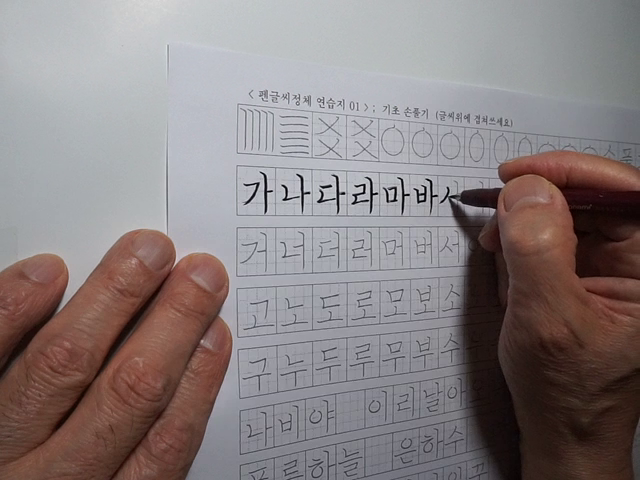 < 펜글씨정체 연습지 01 > ; 기초 손풀기 (글씨위에 겹쳐쓰세요)
가 나 다 라 마 바 사
거 너 더 러 머 버 서
고 노 도 로 모 보 소
구 누 두 루 무 부 수
나 비 야 이 리 날 아
푸 른 하 늘 은 하 수